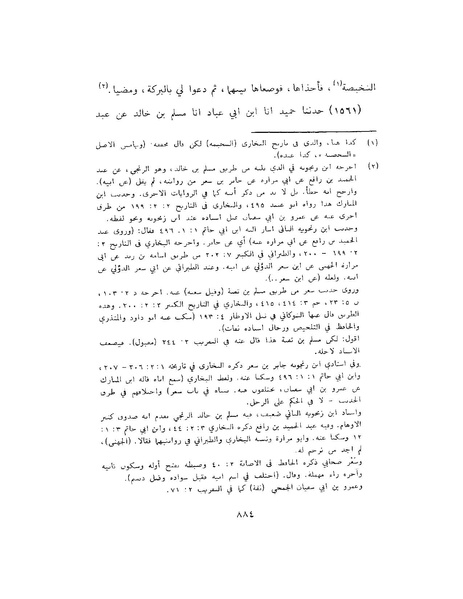 النخيصة(١)، فأخذاها، فوضعاها بينهما، ثم دعوا لي بالبركة، ومضيا. (٢)
(١٥٦١) حدثنا حميد انا ابن ابي عباد انا مسلم بن خالد عن عبد
(١) كذا هنا، والذي في تاريخ البخاري (السخيمة) لكن قال محققه: (وبهامش الاصل
(٢) اخرجه ابن زنجويه في الذي يليه من طريق مسلم بن خالد، وهو الزنجي، عن عبد
الحميد بن رافع عن ابي مرارة عن جابر بن سعر من روايته، لم يقل (عن ابيه).
وارجح انه خطأ، بل لا بد من ذكر أبيه كما في الروايات الاخرى. وحديث ابن
المبارك هذا رواه ابو عبيد ٤٩٥، والبخاري في التاريخ ٢: ٢: ١٩٩ من طرق
اخرى عنه عن عمرو بن ابي سفيان مثل اسناده عند ابن زنجويه ونحو لفظه.
وحديث ابن زنجويه الثاني اشار اليه ابن ابي حاتم ١: ١: ٤٩٦ فقال: (وروى عبد
الحميد بن رافع عن ابي مرارة عنه) أي عن جابر. واخرجه البخاري في التاريخ ٢:
٢: ١٩٩ - ٢٠٠، والطبراني في الكبير ٧: ٢٠٢ من طريق اسامة بن زيد عن ابي
مرارة الجهني عن ابن سعر الدؤلي عن ابيه. وعند الطبراني عن ابي سعر الدؤلي عن
ابيه. ولعله (عن ابن سعر..).
ن ٥: ٢٣، حم ٣: ٤١٤، ٤١٥، والبخاري في التاريخ الكبير ٢: ٢: ٢٠٠. وهذه
الطريق قال عنها الشوكاني في نيل الاوطار ٤: ١٩٣ (سكت عنه ابو داود والمنذري
والحافظ في التلخيص ورجال اسناده ثقات).
اقول: لكن مسلم بن ثفنة هذا قال عنه في التقريب ٢: ٢٤٤ (مقبول). فيضعف
الاسناد لاجله.
وفي اسنادي ابن زنجويه جابر بن سعر ذكره البخاري في تاريخه ١: ٢: ٢٠٦ - ٢٠٧،
وابن ابي حاتم ١: ١: ٤٩٦ وسكتا عنه. ولفظ البخاري (سمع اباه قاله ابن المبارك
الحديث - لا في الحكم على الرجل.
واسناد ابن زنجويه الثاني ضعيف، فيه مسلم بن خالد الزنجي مقدم انه صدوق كثير
الاوهام. وفيه عبد الحميد بن رافع ذكره البخاري ٣: ٢: ٤٤، وابن ابي حاتم ٣: ١:
١٢ وسكتا عنه. وابو مرارة ونسبه البخاري والطبراني في روايتيهما فقالا: (الجهني)،
لم اجد من ترجم له.
وسعر صحابي ذكره الحافظ في الاصابة ٢: ٤٠ وضبطه بفتح أوله وسكون ثانيه
وآخره راء مهملة. وقال: (اختلف في اسم ابيه فقيل سوادة وقيل ديسم).
وعمرو بن ابي سفيان الجمحي (ثقة) كما في التقريب ٢: ٧١.
٨٨٤